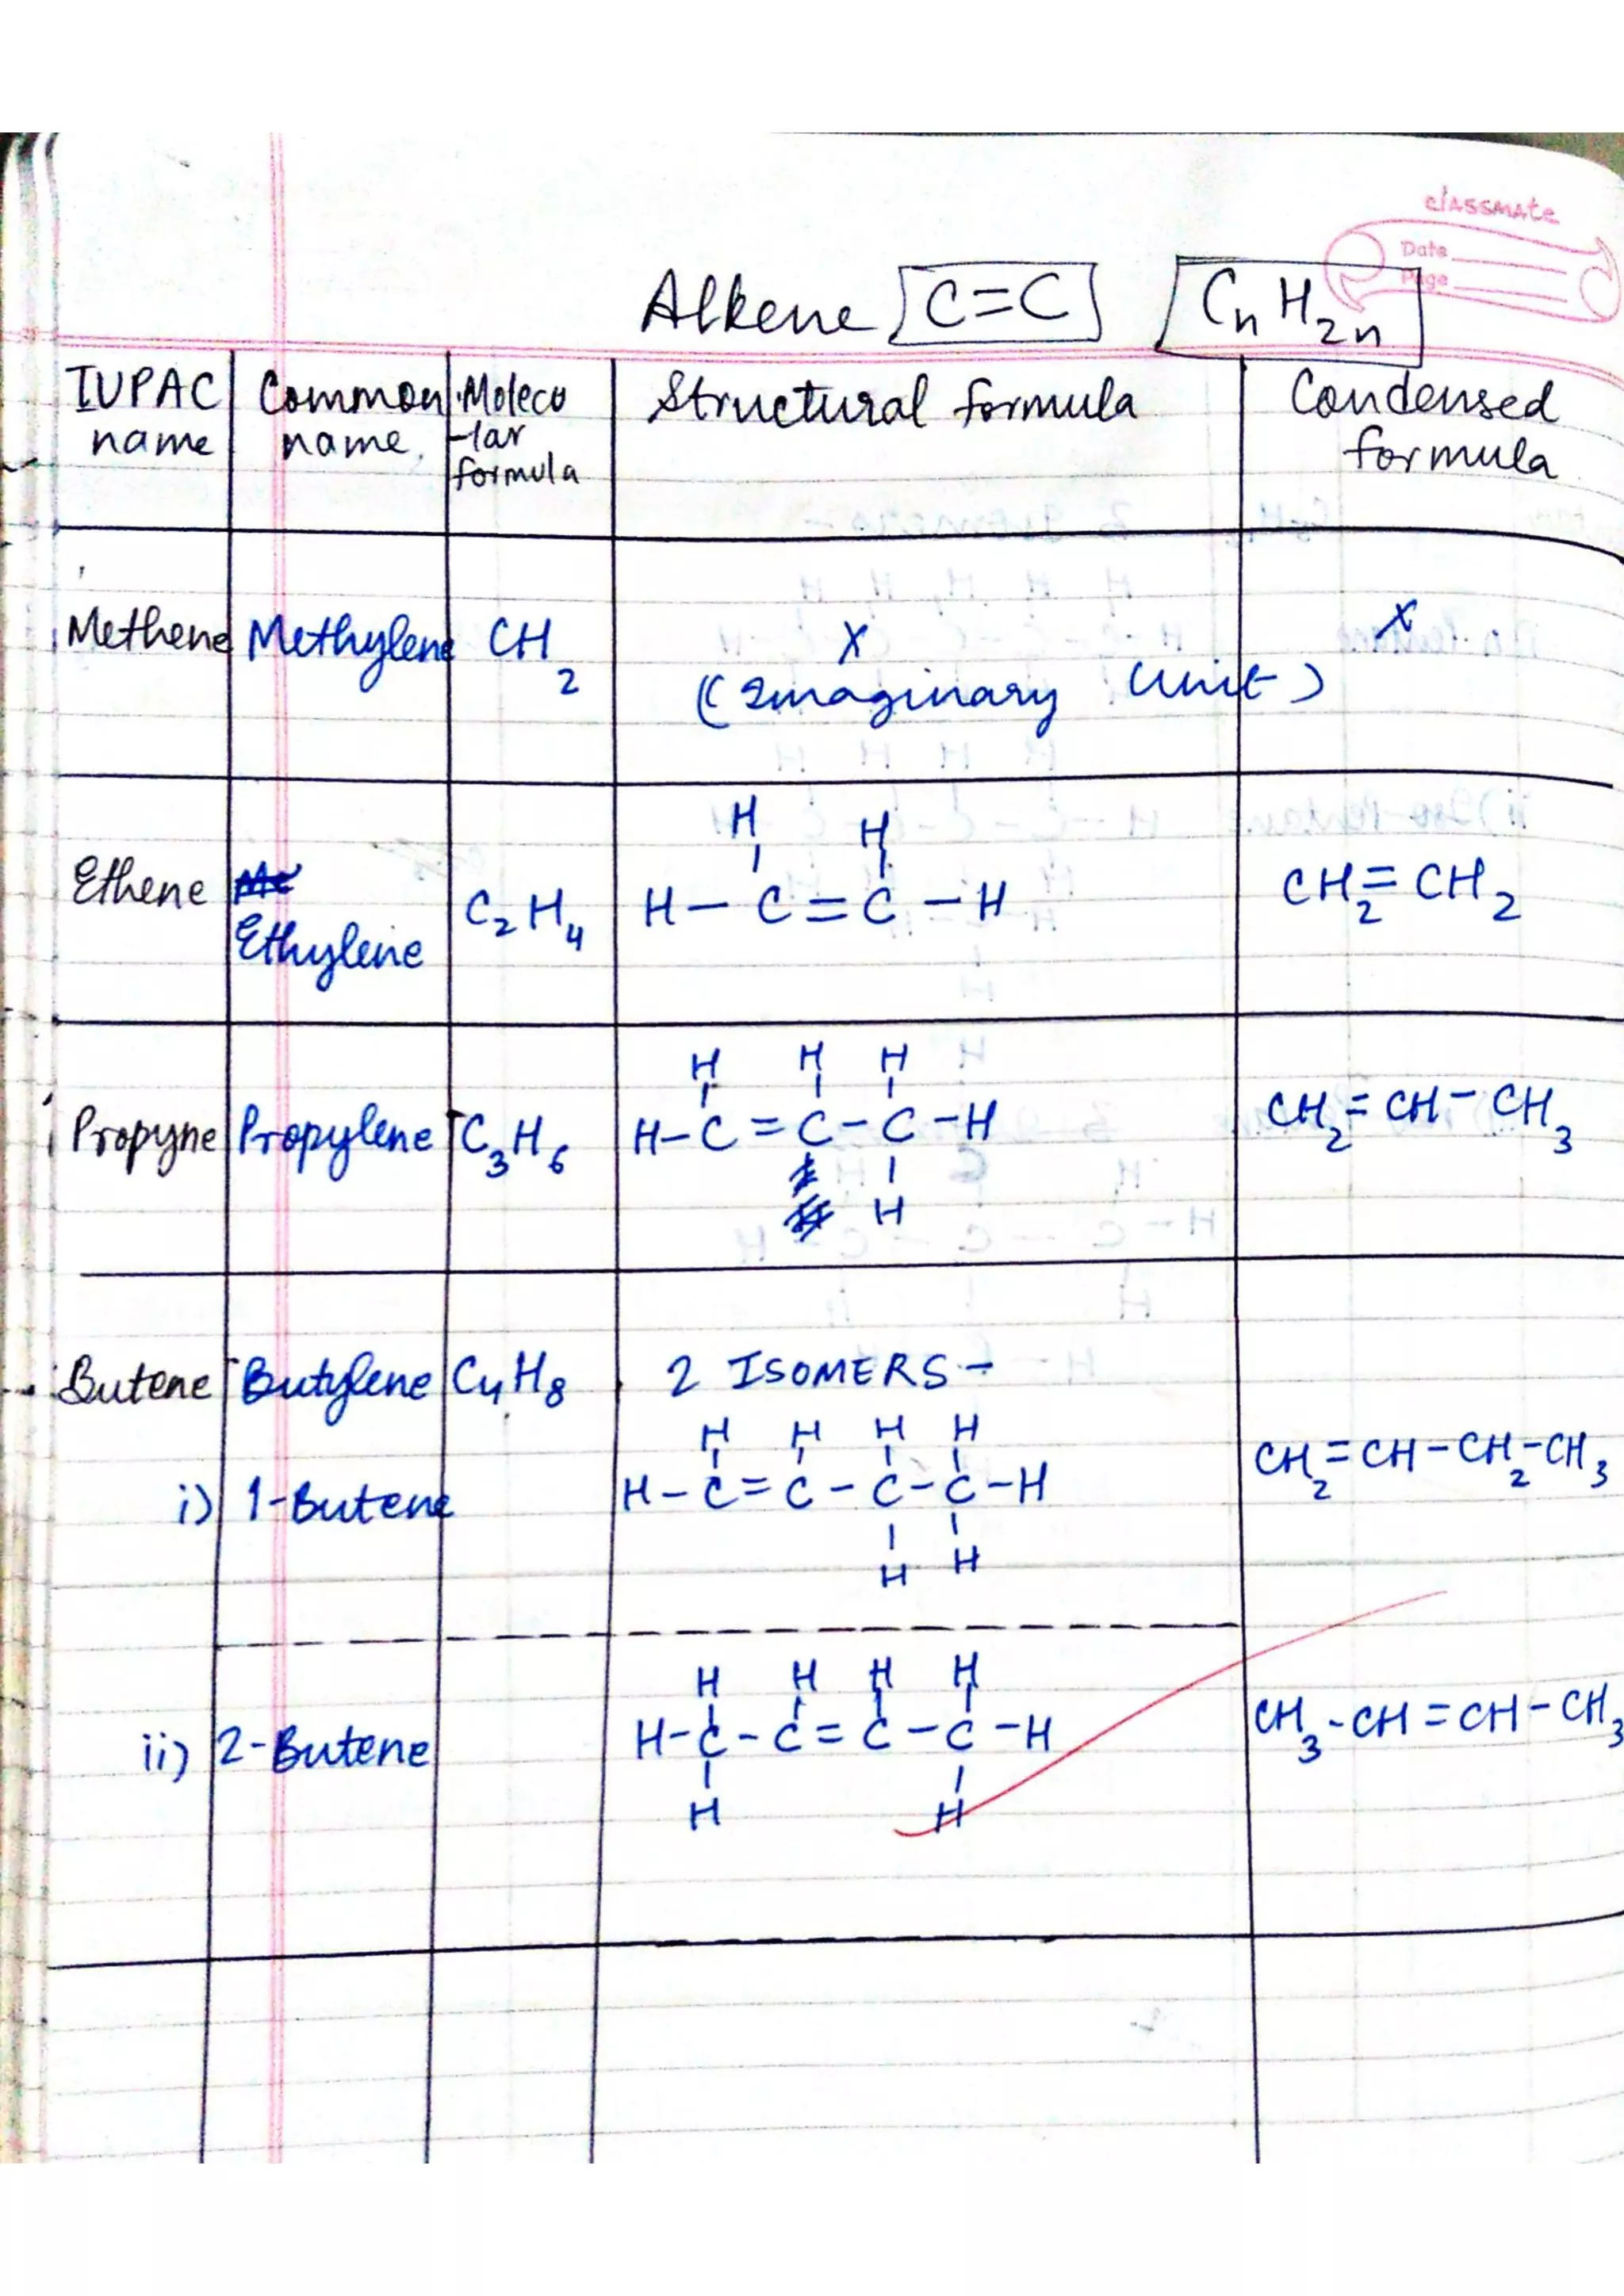 classmate
Date
Page
Alkene C=C CnH2n
IUPAC name
Common name
Molecu-lar formula
Structural formula
Condensed formula
Methene Methylene CH2 X X
(Imaginary Unit)
H H
Ethene C2H4 H-C=C-H CH2=CH2
Ethylene
H H H
Propyne Propylene C3H6 H-C=C-C-H CH2=CH-CH3
H
Butene Butylene C4H8 2 ISOMERS-
H H H H
i) 1-Butene H-C=C-C-C-H CH2=CH-CH2-CH3
H H
H H H H
ii) 2-Butene H-C-C=C-C-H CH3-CH=CH-CH3
H H